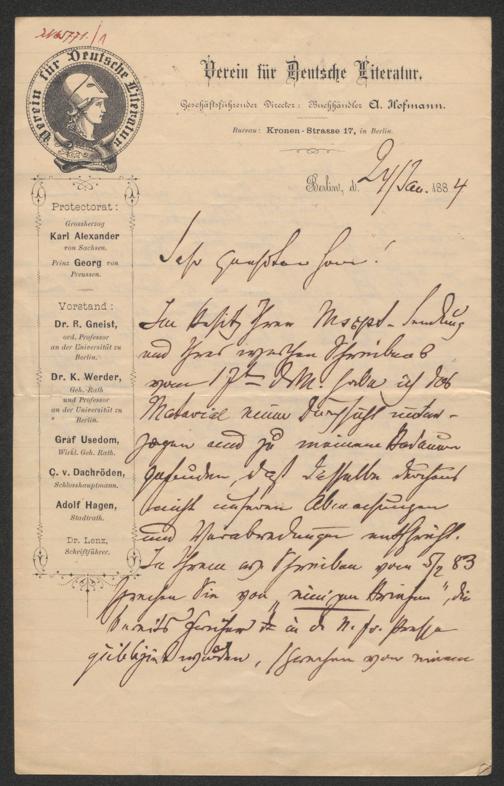 Verein für Deutsche Literatur
Verein für Deutsche Literatur,
Geschäftsführender Director: Buchhändler A. Hofmann.
Bureau: Kronen-Strasse 17, in Berlin.
Berlin, d. 24/Jan. 1884
Protectorat:
Grossherzog
Karl Alexander
von Sachsen.
Prinz Georg von
Preussen.
Vorstand:
Dr. R. Gneist,
ord. Professor
an der Universität zu
Berlin.
Dr. K. Werder,
Geh. Rath
und Professor
an der Universität zu
Berlin.
Graf Usedom,
Wirkl. Geh. Rath.
C. v. Dachröden,
Schlosshauptmann.
Adolf Hagen,
Stadtrath.
Dr. Lenz,
Schriftführer.
Sehr geehrter Herr!
Im Besitz Ihrer Mscpt-Sendung
und Ihres werthen Schreibens
vom 17ten d. M. habe ich das
Material einer Durchsicht unter-
zogen und zu meinem Bedauern
gefunden, daß dasselbe durchaus
nicht unseren Abmachungen
und Verabredungen entspricht.
In Ihrem Schreiben vom 5/2 83
sprechen Sie von „einigen Briefen", die
bereits früher in d. N. fr. Presse
publizirt wurden, sprechen von einem